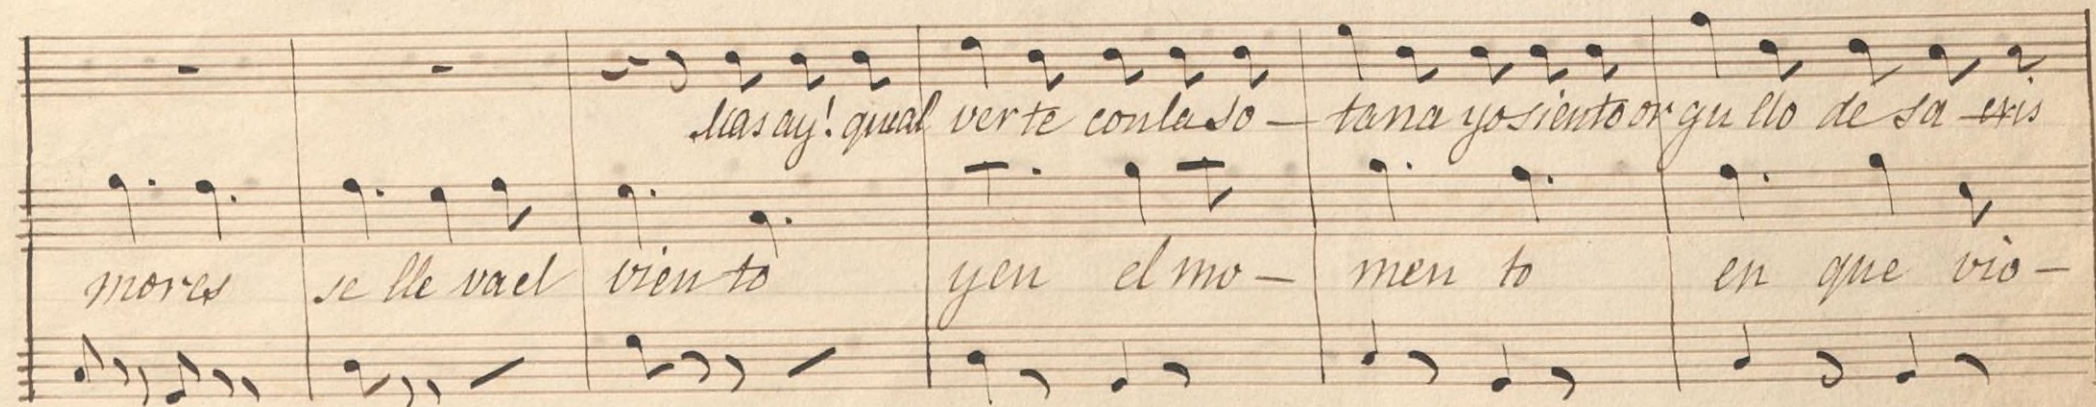 Mas ay! qual verte con la so- tana yo siento or gu llo de sa exis
mores se lle va el vien to y en el mo- men to en que vio-